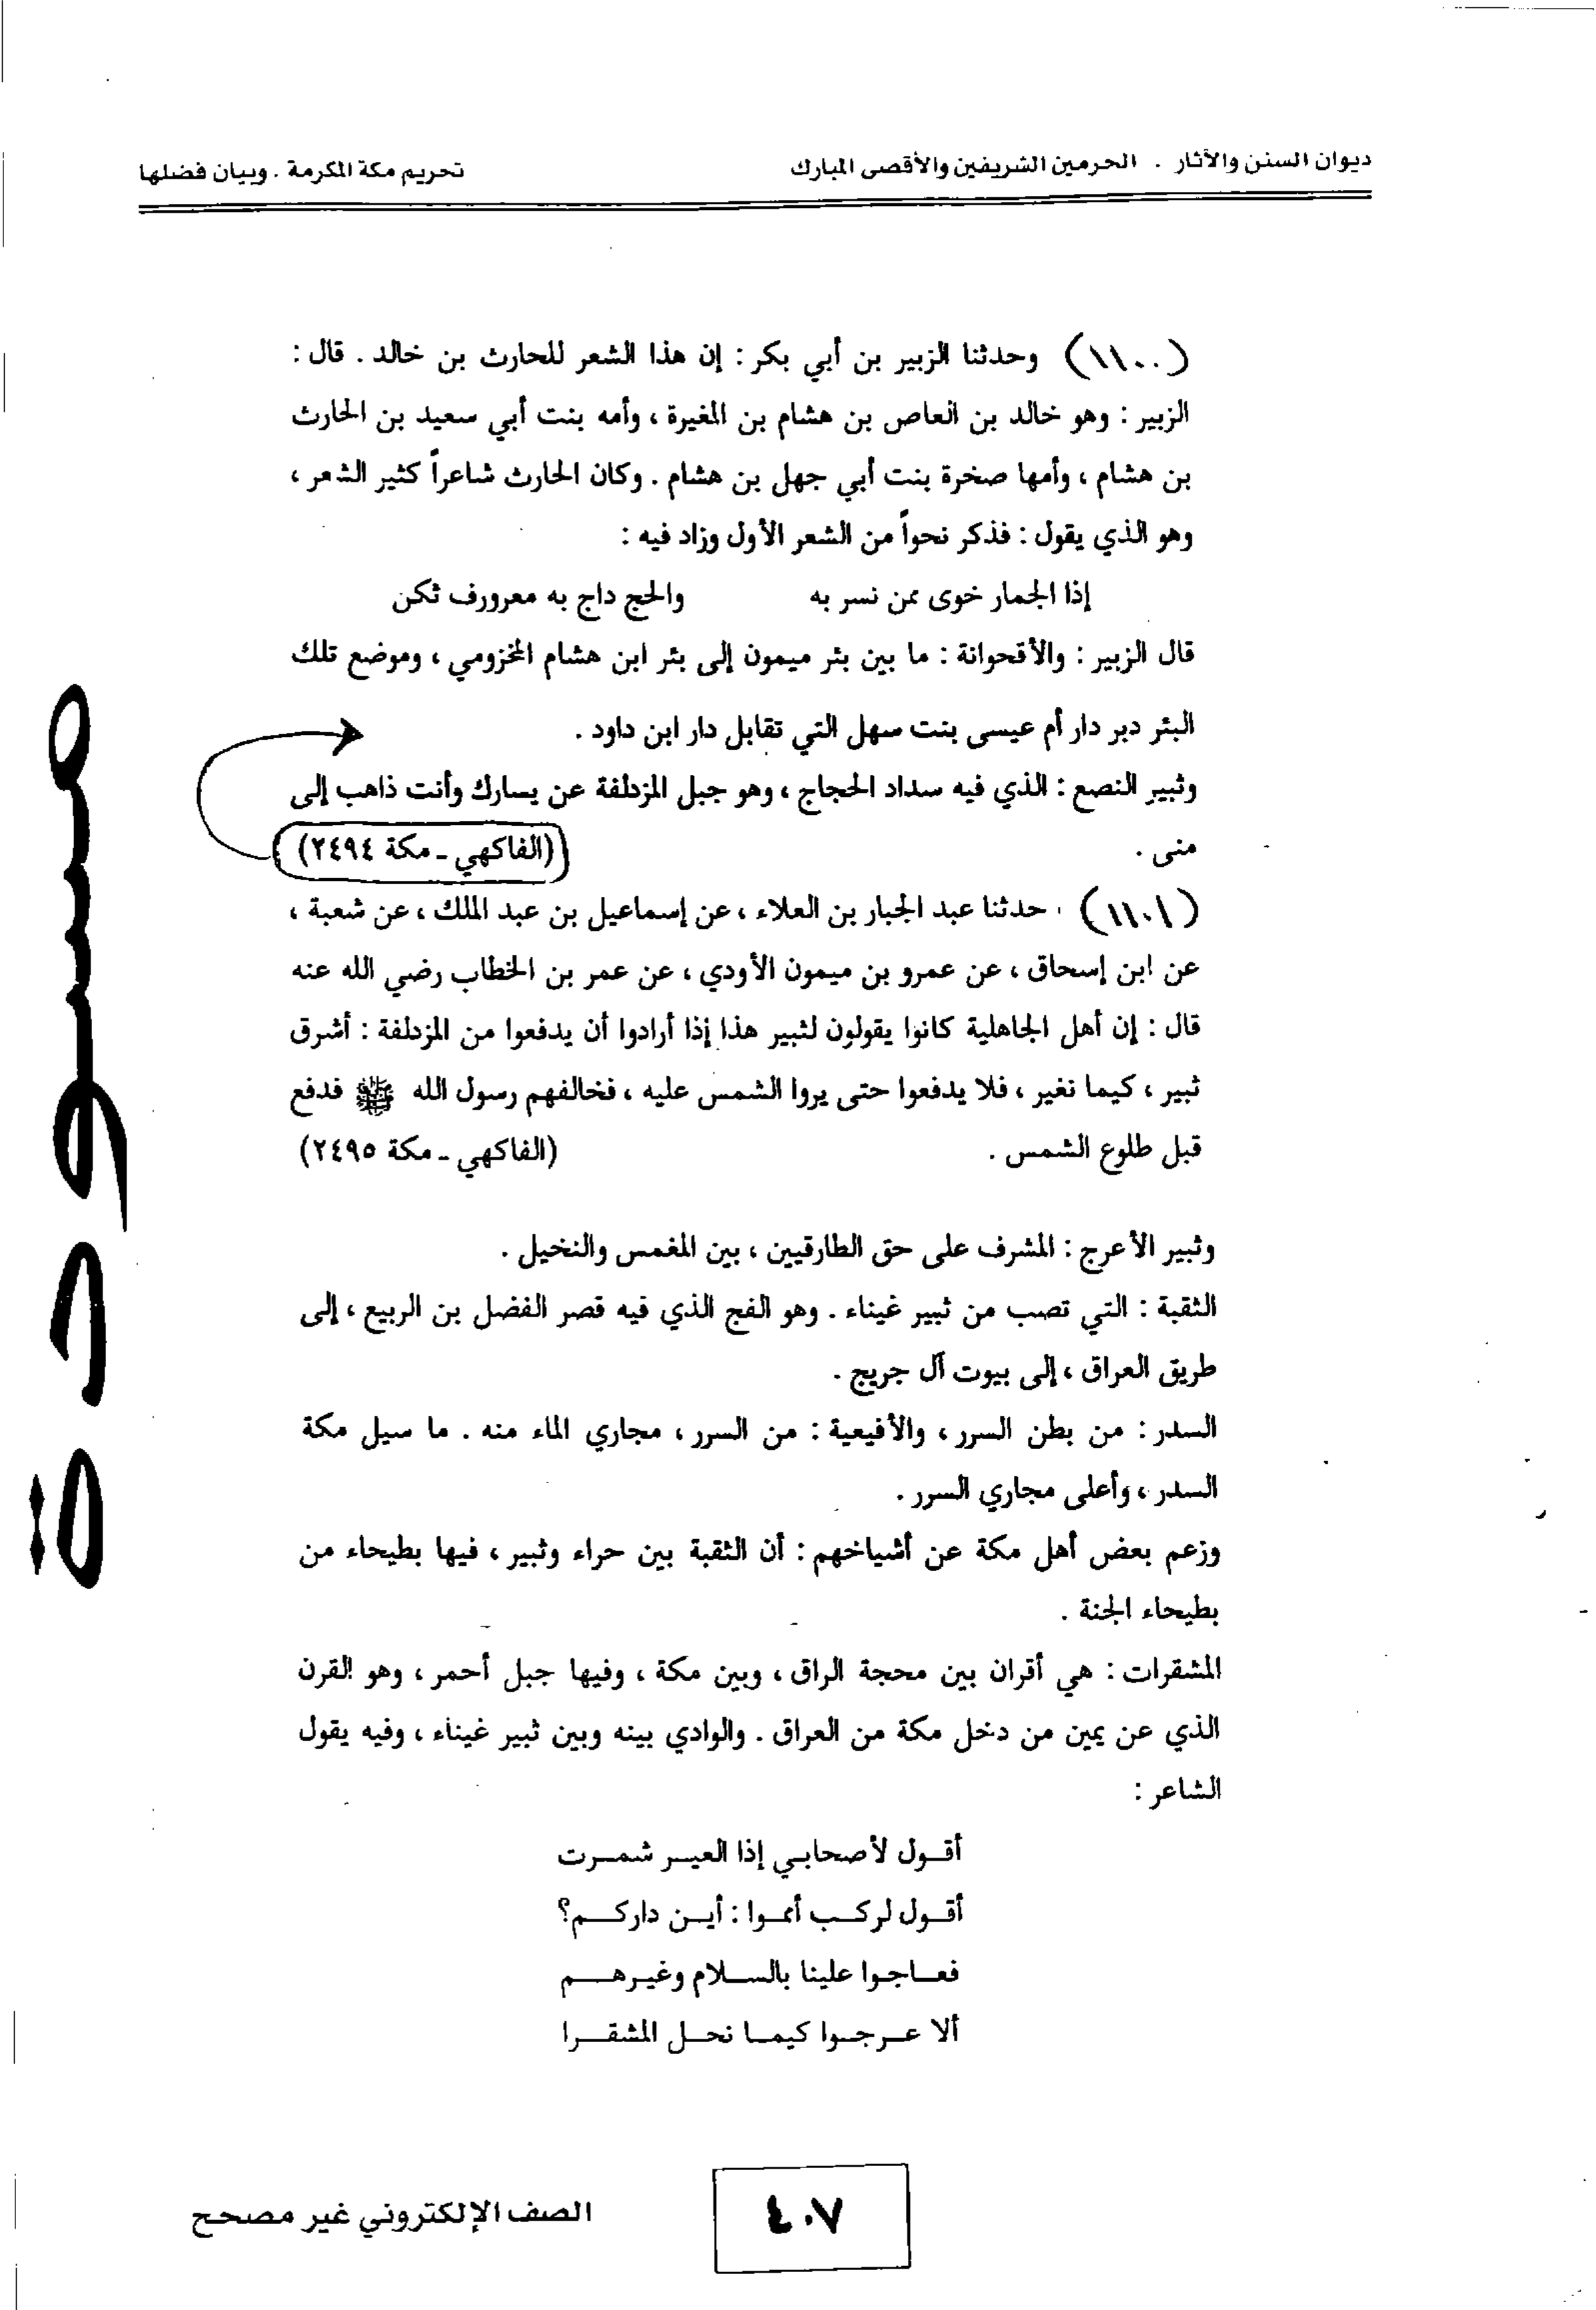 ديوان السنن والآثار . الحرمين الشريفين والأقصى المبارك
تحريم مكة المكرمة . وبيان فضلها
(١١٠٠) وحدثنا الزبير بن أبي بكر : إن هذا الشعر للحارث بن خالد . قال :
الزبير : وهو خالد بن العاص بن هشام بن المغيرة ، وأمه بنت أبي سعيد بن الحارث
بن هشام ، وأمها صخرة بنت أبي جهل بن هشام . وكان الحارث شاعراً كثير الشعر ،
وهو الذي يقول : فذكر نحواً من الشعر الأول وزاد فيه :
إذا الجمار خوى ممن نسر به والحج داج به معرورف ثكن
قال الزبير : والأقحوانة : ما بين بئر ميمون إلى بئر ابن هشام المخزومي ، وموضع تلك
البئر دبر دار أم عيسى بنت سهل التي تقابل دار ابن داود .
وثبير النصع : الذي فيه سداد الحجاج ، وهو جبل المزدلفة عن يسارك وأنت ذاهب إلى
منى . (الفاكهي ـ مكة ٢٤٩٤)
(١١٠١) حدثنا عبد الجبار بن العلاء ، عن إسماعيل بن عبد الملك ، عن شعبة ،
عن ابن إسحاق ، عن عمرو بن ميمون الأودي ، عن عمر بن الخطاب رضي الله عنه
قال : إن أهل الجاهلية كانوا يقولون لثبير هذا إذا أرادوا أن يدفعوا من المزدلفة : أشرق
ثبير ، كيما نغير ، فلا يدفعوا حتى يروا الشمس عليه ، فخالفهم رسول الله ﷺ فدفع
قبل طلوع الشمس . (الفاكهي ـ مكة ٢٤٩٥)
وثبير الأعرج : المشرف على حق الطارقيين ، بين المغمس والنخيل .
الثقبة : التي تصب من ثبير غيناء . وهو الفج الذي فيه قصر الفضل بن الربيع ، إلى
طريق العراق ، إلى بيوت آل جريج .
السدر : من بطن السرر ، والأفيعية : من السرر ، مجاري الماء منه . ما سيل مكة
السدر ، وأعلى مجاري السرر .
وزعم بعض أهل مكة عن أشياخهم : أن الثقبة بين حراء وثبير ، فيها بطيحاء من
بطيحاء الجنة .
المشقرات : هي أقران بين محجة الراق ، وبين مكة ، وفيها جبل أحمر ، وهو القرن
الذي عن يمين من دخل مكة من العراق . والوادي بينه وبين ثبير غيناء ، وفيه يقول
الشاعر :
أقول لأصحابي إذا العير شمرت
أقول لركب أمموا : أين داركم؟
فعاجوا علينا بالسلام وغيرهم
ألا عرجوا كيما نحل المشقرا
مسودة
٤٠٧
الصف الإلكتروني غير مصحح